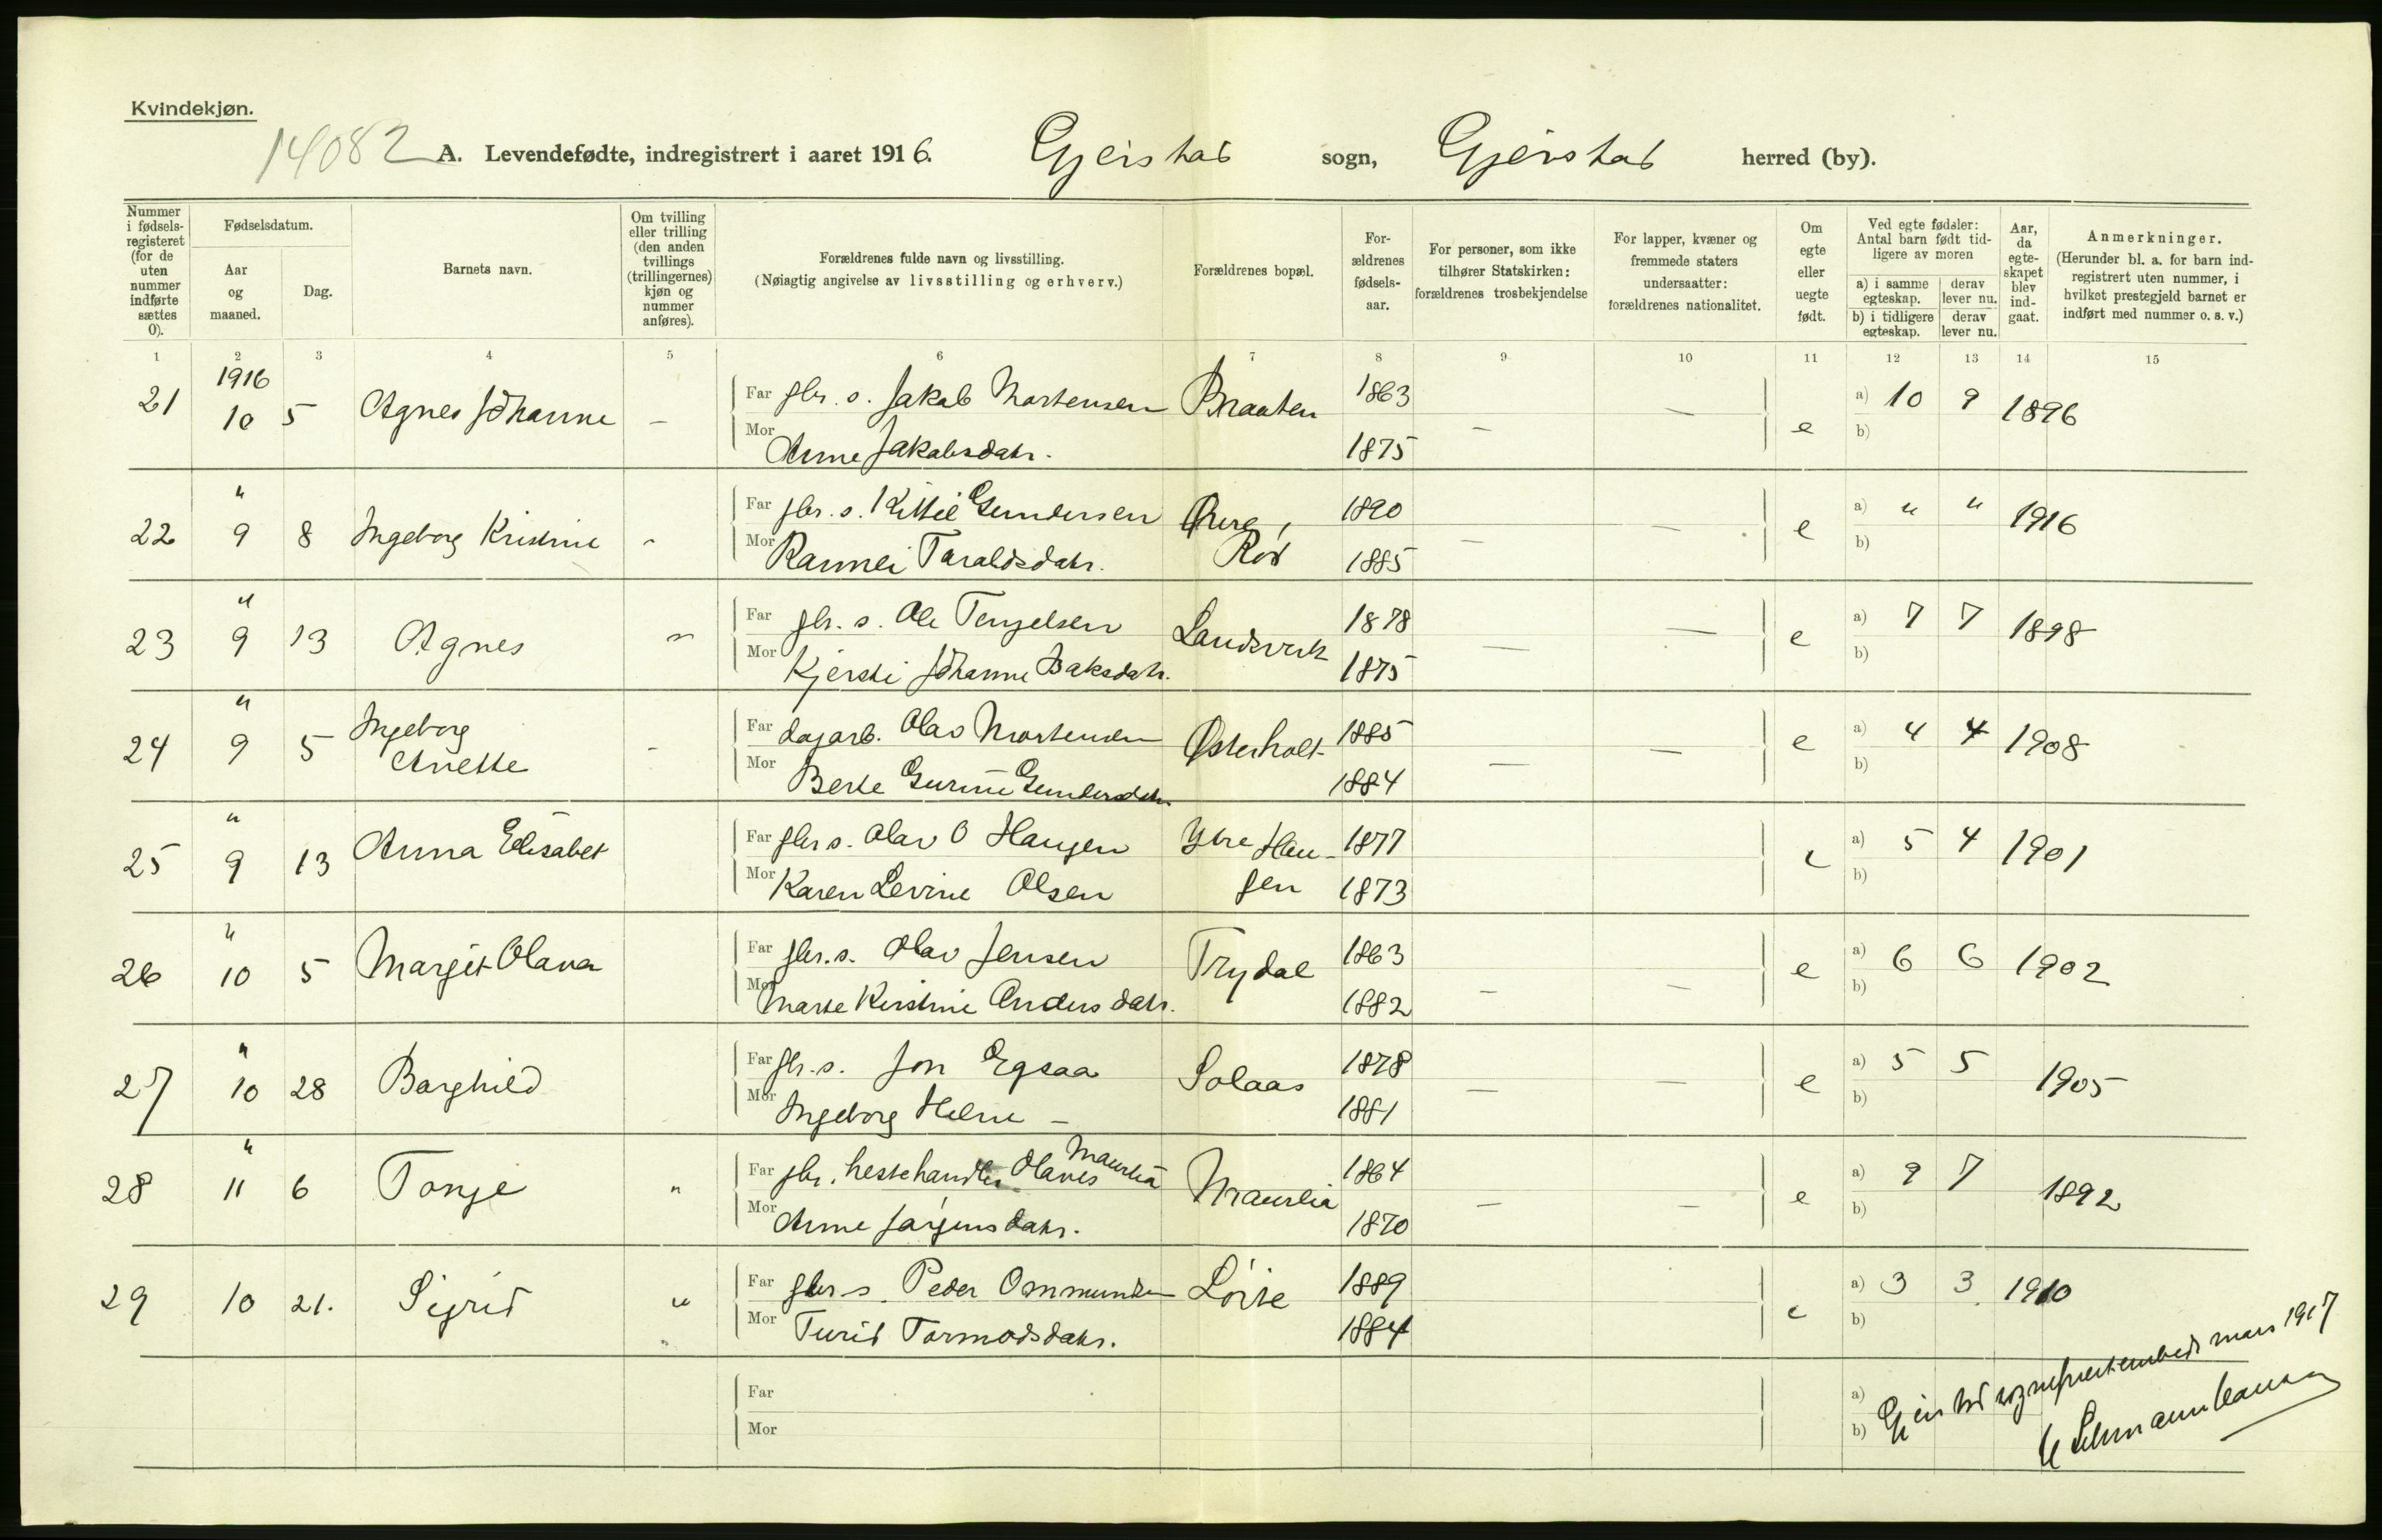 Kvindekjøn.
14082 A. Levendefødte, indregistrert i aaret 1916. Gjerstad sogn, Gjerstad herred (by).
Nummer i fødselsregisteret (for de uten nummer indførte sættes 0).
Fødselsdatum.
Aar og maaned.
Dag.
Barnets navn.
Om tvilling eller trilling (den anden tvillings (trillingernes) kjøn og nummer anføres).
Forældrenes fulde navn og livsstilling.
(Nøiagtig angivelse av livsstilling og erhverv.)
Forældrenes bopæl.
Forældrenes fødselsaar.
For personer, som ikke tilhører Statskirken: forældrenes trosbekjendelse
For lapper, kvæner og fremmede staters undersaatter: forældrenes nationalitet.
Om egte eller uegte født.
Ved egte fødsler: Antal barn født tidligere av moren
a) i samme egteskap. derav lever nu.
b) i tidligere egteskap. derav lever nu.
Aar, da egteskapet blev indgaat.
Anmerkninger.
(Herunder bl. a. for barn indregistrert uten nummer, i hvilket prestegjeld barnet er indført med nummer o. s. v.)
1 2 3 4 5 6 7 8 9 10 11 12 13 14 15
1916
21 10 5 Agnes Johanne – Far gbr. s. Jakob Mortensen Braaten 1863 – – e a) 10 9 1896
Mor Anne Jakobsdatr. 1875 b)
22 " 9 8 Ingeborg Kristine " Far gbr. s. Kittil Gundersen Øvre Rød 1890 – – e a) " " 1916
Mor Rannei Taraldsdatr. 1885 b)
23 " 9 13 Agnes " Far gbr. s. Ole Tengelsen Landsverk 1878 – – e a) 7 7 1898
Mor Kjersti Johanne Isaksdatr. 1875 b)
24 " 9 5 Ingeborg Anette – Far dagarb. Olav Mortensen Østerholt 1885 – – e a) 4 4 1908
Mor Berte Gurine Gundersdatr. 1884 b)
25 " 9 13 Anna Elisabet Far gbr s. Olav O Haugen Ytre Haugen 1877 e a) 5 4 1901
Mor Karen Levine Olsen 1873 b)
26 " 10 5 Margit Olava Far gbr. s. Olav Jensen Trydal 1863 – – e a) 6 6 1902
Mor Marte Kirstine Andersdatr. 1882 b)
27 " 10 28 Borghild Far gbr. s. Jon Egsaa Solaas 1878 – – e a) 5 5 1905
Mor Ingeborg Helene – 1881 b)
28 " 11 6 Tonje " Far gbr. hestehandler Olaves Maurlia Maurlia 1864 – – e a) 9 7 1892
Mor Anne Jørgensdatr. 1870 b)
29 10 21. Sigrid " Far gbr s. Peder Ommundsen Løite 1889 e a) 3 3 1910
Mor Turid Tormodsdatr. 1884 b)
Far a)
Mor b)
Gjerstad sogneprestembede mars 1917